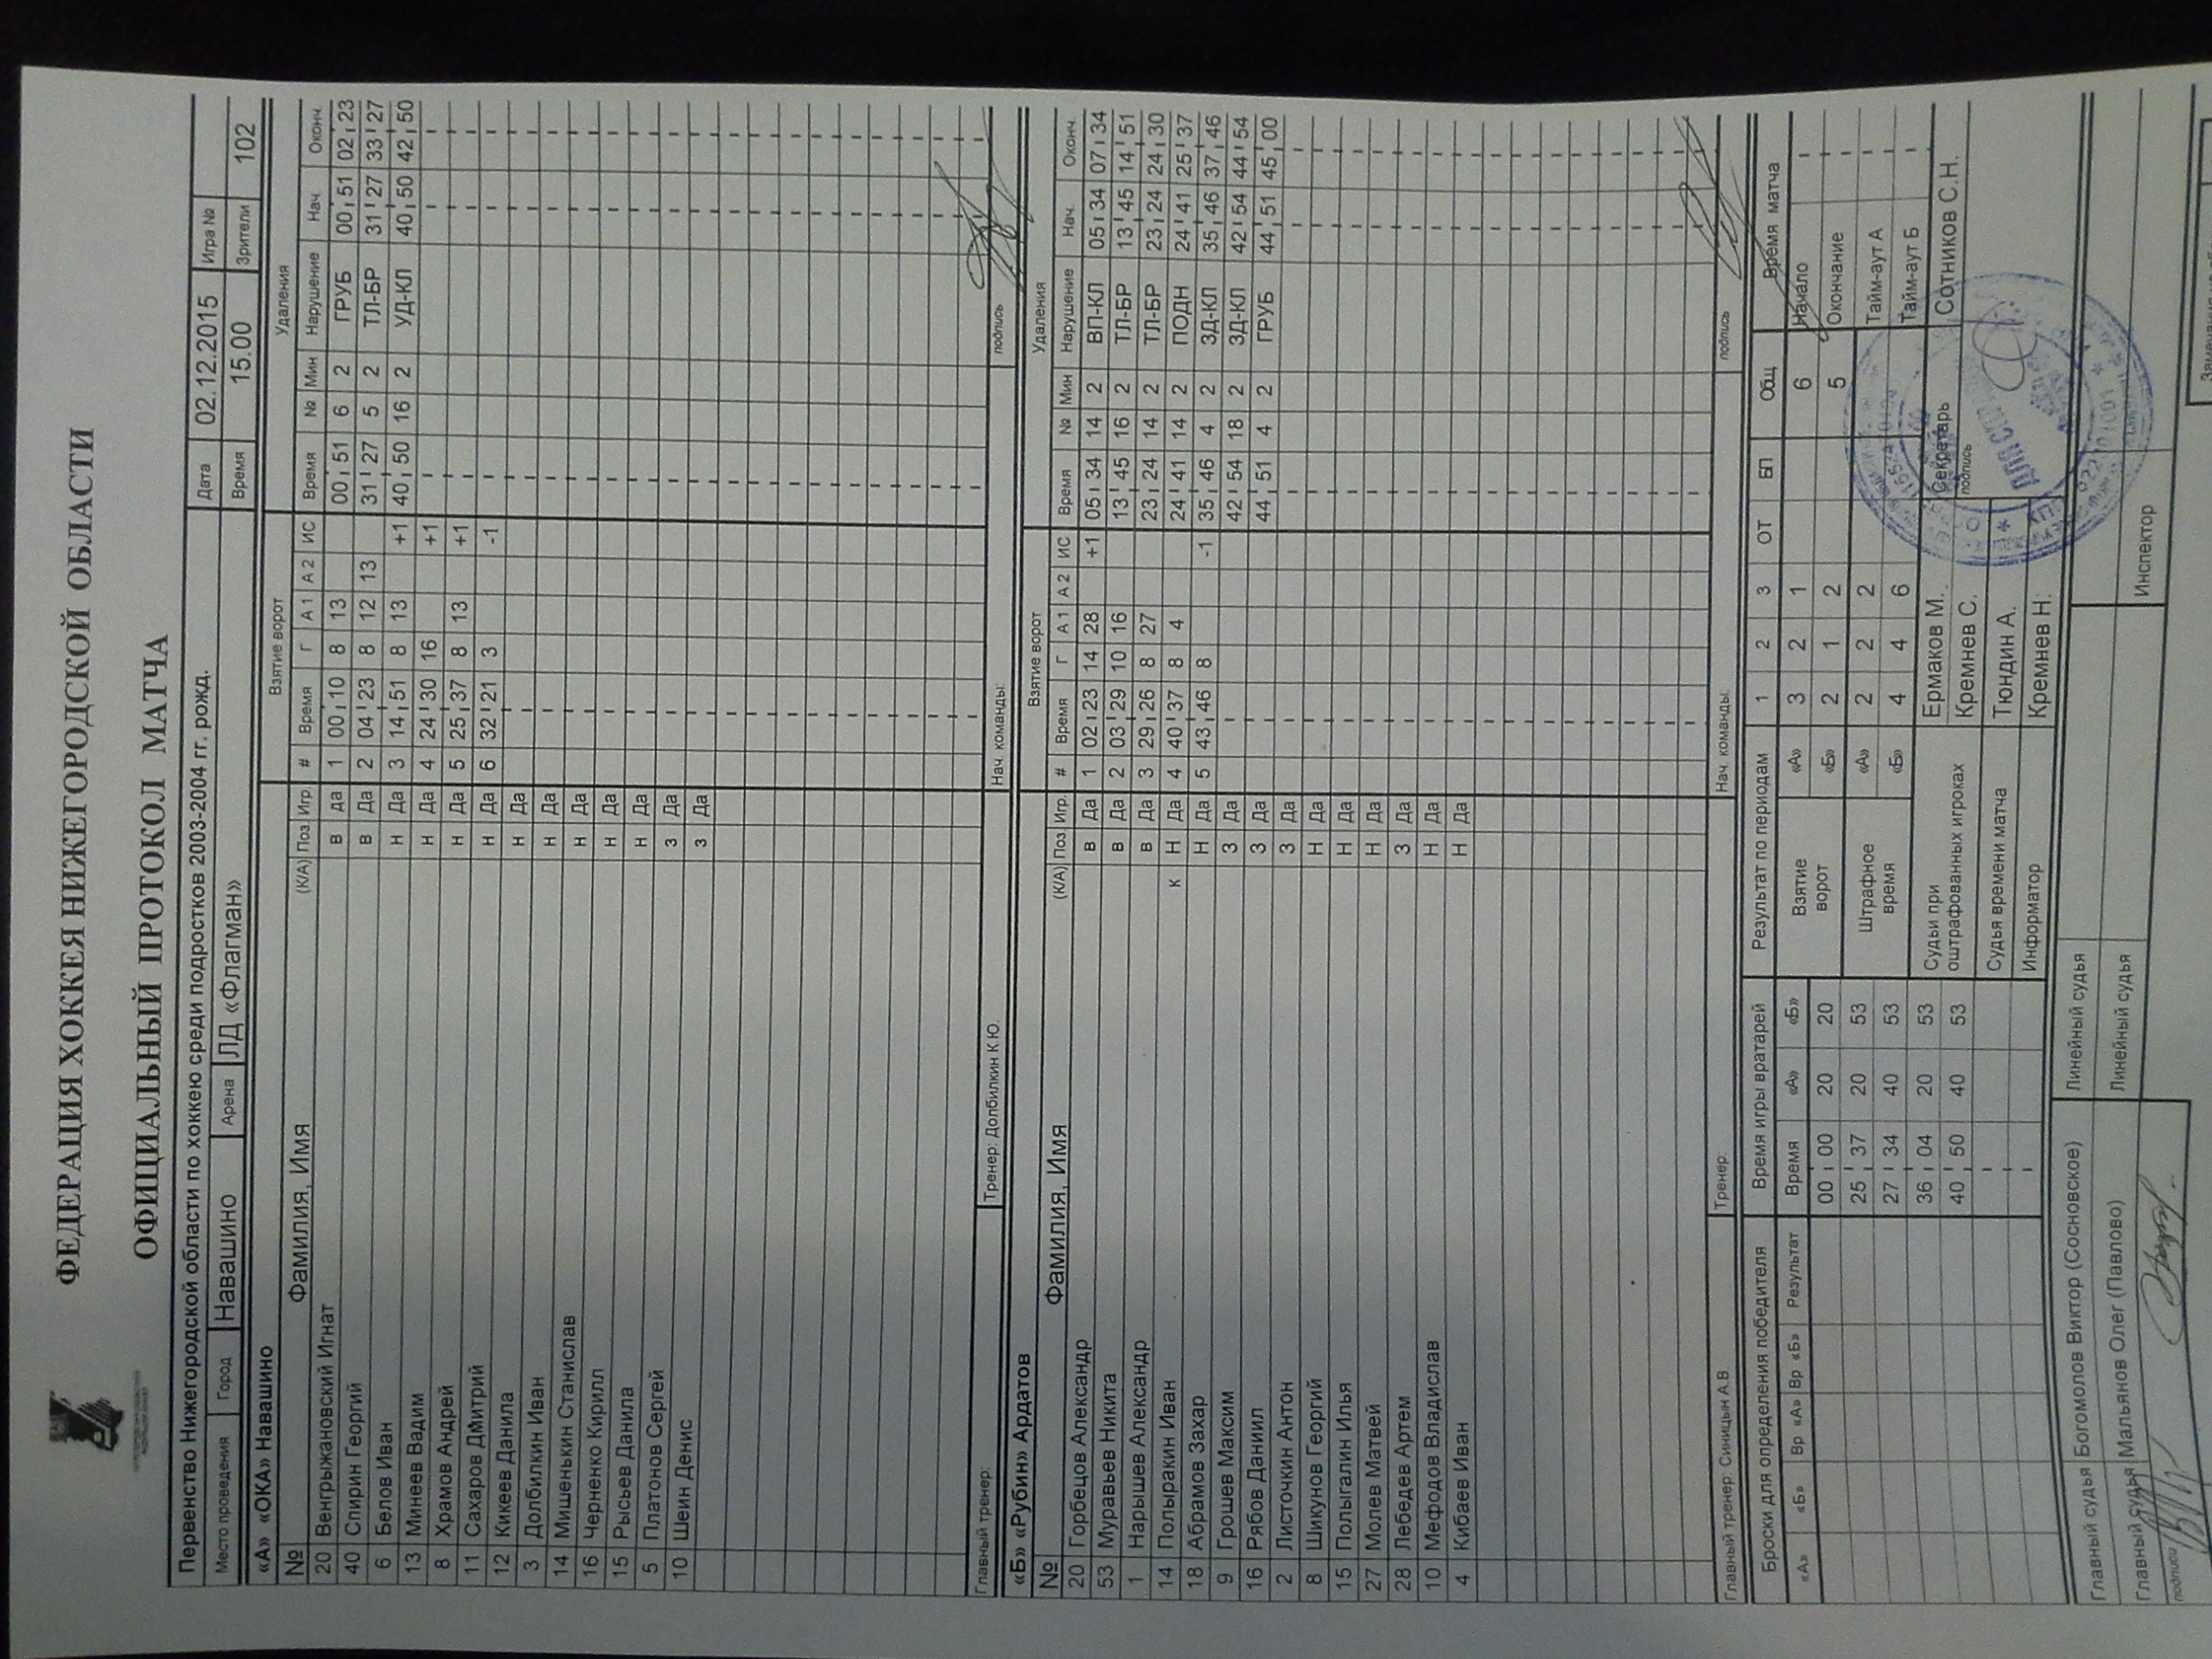 ФЕДЕРАЦИЯ ХОККЕЯ НИЖЕГОРОДСКОЙ ОБЛАСТИ
ОФИЦИАЛЬНЫЙ ПРОТОКОЛ МАТЧА
Первенство Нижегородской области по хоккею среди подростков 2003-2004 гг. рожд. Дата 02.12.2015 Игра №
Место проведения Город Навашино Арена ЛД «Флагман» Время 15.00 Зрители 102
«А» «ОКА» Навашино Взятие ворот Удаления
№ Фамилия, Имя (К/А) Поз Игр. # Время Г А 1 А 2 ИС Время № Мин Нарушение Нач. Оконч.
20 Венгрыжановский Игнат в да 1 00 10 8 13 00 51 6 2 ГРУБ 00 51 02 23
40 Спирин Георгий в Да 2 04 23 8 12 13 31 27 5 2 ТЛ-БР 31 27 33 27
6 Белов Иван н Да 3 14 51 8 13 +1 40 50 16 2 УД-КЛ 40 50 42 50
13 Минеев Вадим н Да 4 24 30 16 +1
8 Храмов Андрей н Да 5 25 37 8 13 +1
11 Сахаров Дмитрий н Да 6 32 21 3 -1
12 Кикеев Данила н Да
3 Долбилкин Иван н Да
14 Мишенькин Станислав н Да
16 Черненко Кирилл н Да
15 Рысьев Данила н Да
5 Платонов Сергей з Да
10 Шеин Денис з Да
Главный тренер: Тренер: Долбилкин К.Ю. Нач. команды: подпись
«Б» «Рубин» Ардатов Взятие ворот Удаления
№ Фамилия, Имя (К/А) Поз Игр. # Время Г А 1 А 2 ИС Время № Мин Нарушение Нач. Оконч.
20 Горбецов Александр в Да 1 02 23 14 28 +1 05 34 14 2 ВП-КЛ 05 34 07 34
53 Муравьев Никита в Да 2 03 29 10 16 13 45 16 2 ТЛ-БР 13 45 14 51
1 Нарышев Александр в Да 3 29 26 8 27 23 24 14 2 ТЛ-БР 23 24 24 30
14 Полыракин Иван к Н Да 4 40 37 8 4 24 41 14 2 ПОДН 24 41 25 37
18 Абрамов Захар Н Да 5 43 46 8 -1 35 46 4 2 ЗД-КЛ 35 46 37 46
9 Грошев Максим З Да 42 54 18 2 ЗД-КЛ 42 54 44 54
16 Рябов Даниил З Да 44 51 4 2 ГРУБ 44 51 45 00
2 Листочкин Антон З Да
8 Шикунов Георгий Н Да
15 Полыгалин Илья Н Да
27 Молев Матвей Н Да
28 Лебедев Артем З Да
10 Мефодов Владислав Н Да
4 Кибаев Иван Н Да
Главный тренер: Синицын А.В. Тренер Нач. команды: подпись
Броски для определения победителя Время игры вратарей Результат по периодам 1 2 3 ОТ БП Общ Время матча
«А» «Б» Вр «А» Вр «Б» Результат Время «А» «Б» Взятие ворот «А» 3 2 1 6 Начало
00 00 20 20 «Б» 2 1 2 5 Окончание
25 37 20 53 Штрафное время «А» 2 2 2 Тайм-аут А
27 34 40 53 «Б» 4 4 6 Тайм-аут Б
36 04 20 53 Судьи при оштрафованных игроках Ермаков М. Секретарь Сотников С.Н.
40 50 40 53 Кремнев С. подпись
Судья времени матча Тюндин А.
Информатор Кремнев Н.
Главный судья Богомолов Виктор (Сосновское) Линейный судья
Главный судья Мальянов Олег (Павлово) Линейный судья Инспектор
подписи